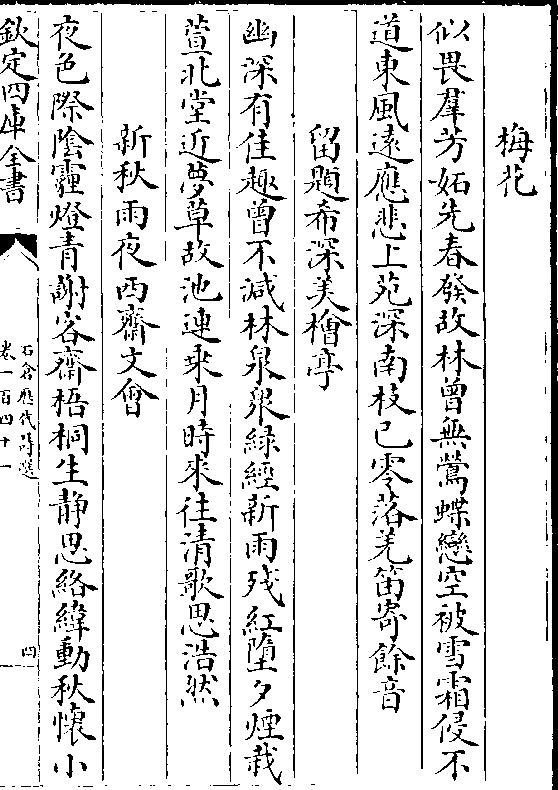 梅花
似畏羣芳妬先春發故林曾無鶯蝶戀空被雪霜侵不
道東風逺應悲上苑深南枝已零落羌笛寄餘音
留題希深美檜亭
幽深有佳趣曾不減林泉衆緑經新雨殘紅墮夕煙栽
萱北堂近夢草故池連乗月時來往清歌思浩然
新秋雨夜西齋文會
夜色際陰霾燈青謝客齋梧桐生静思絡緯動秋懷小
欽定四庫全書
石倉歴代詩選
卷一百四十一
四